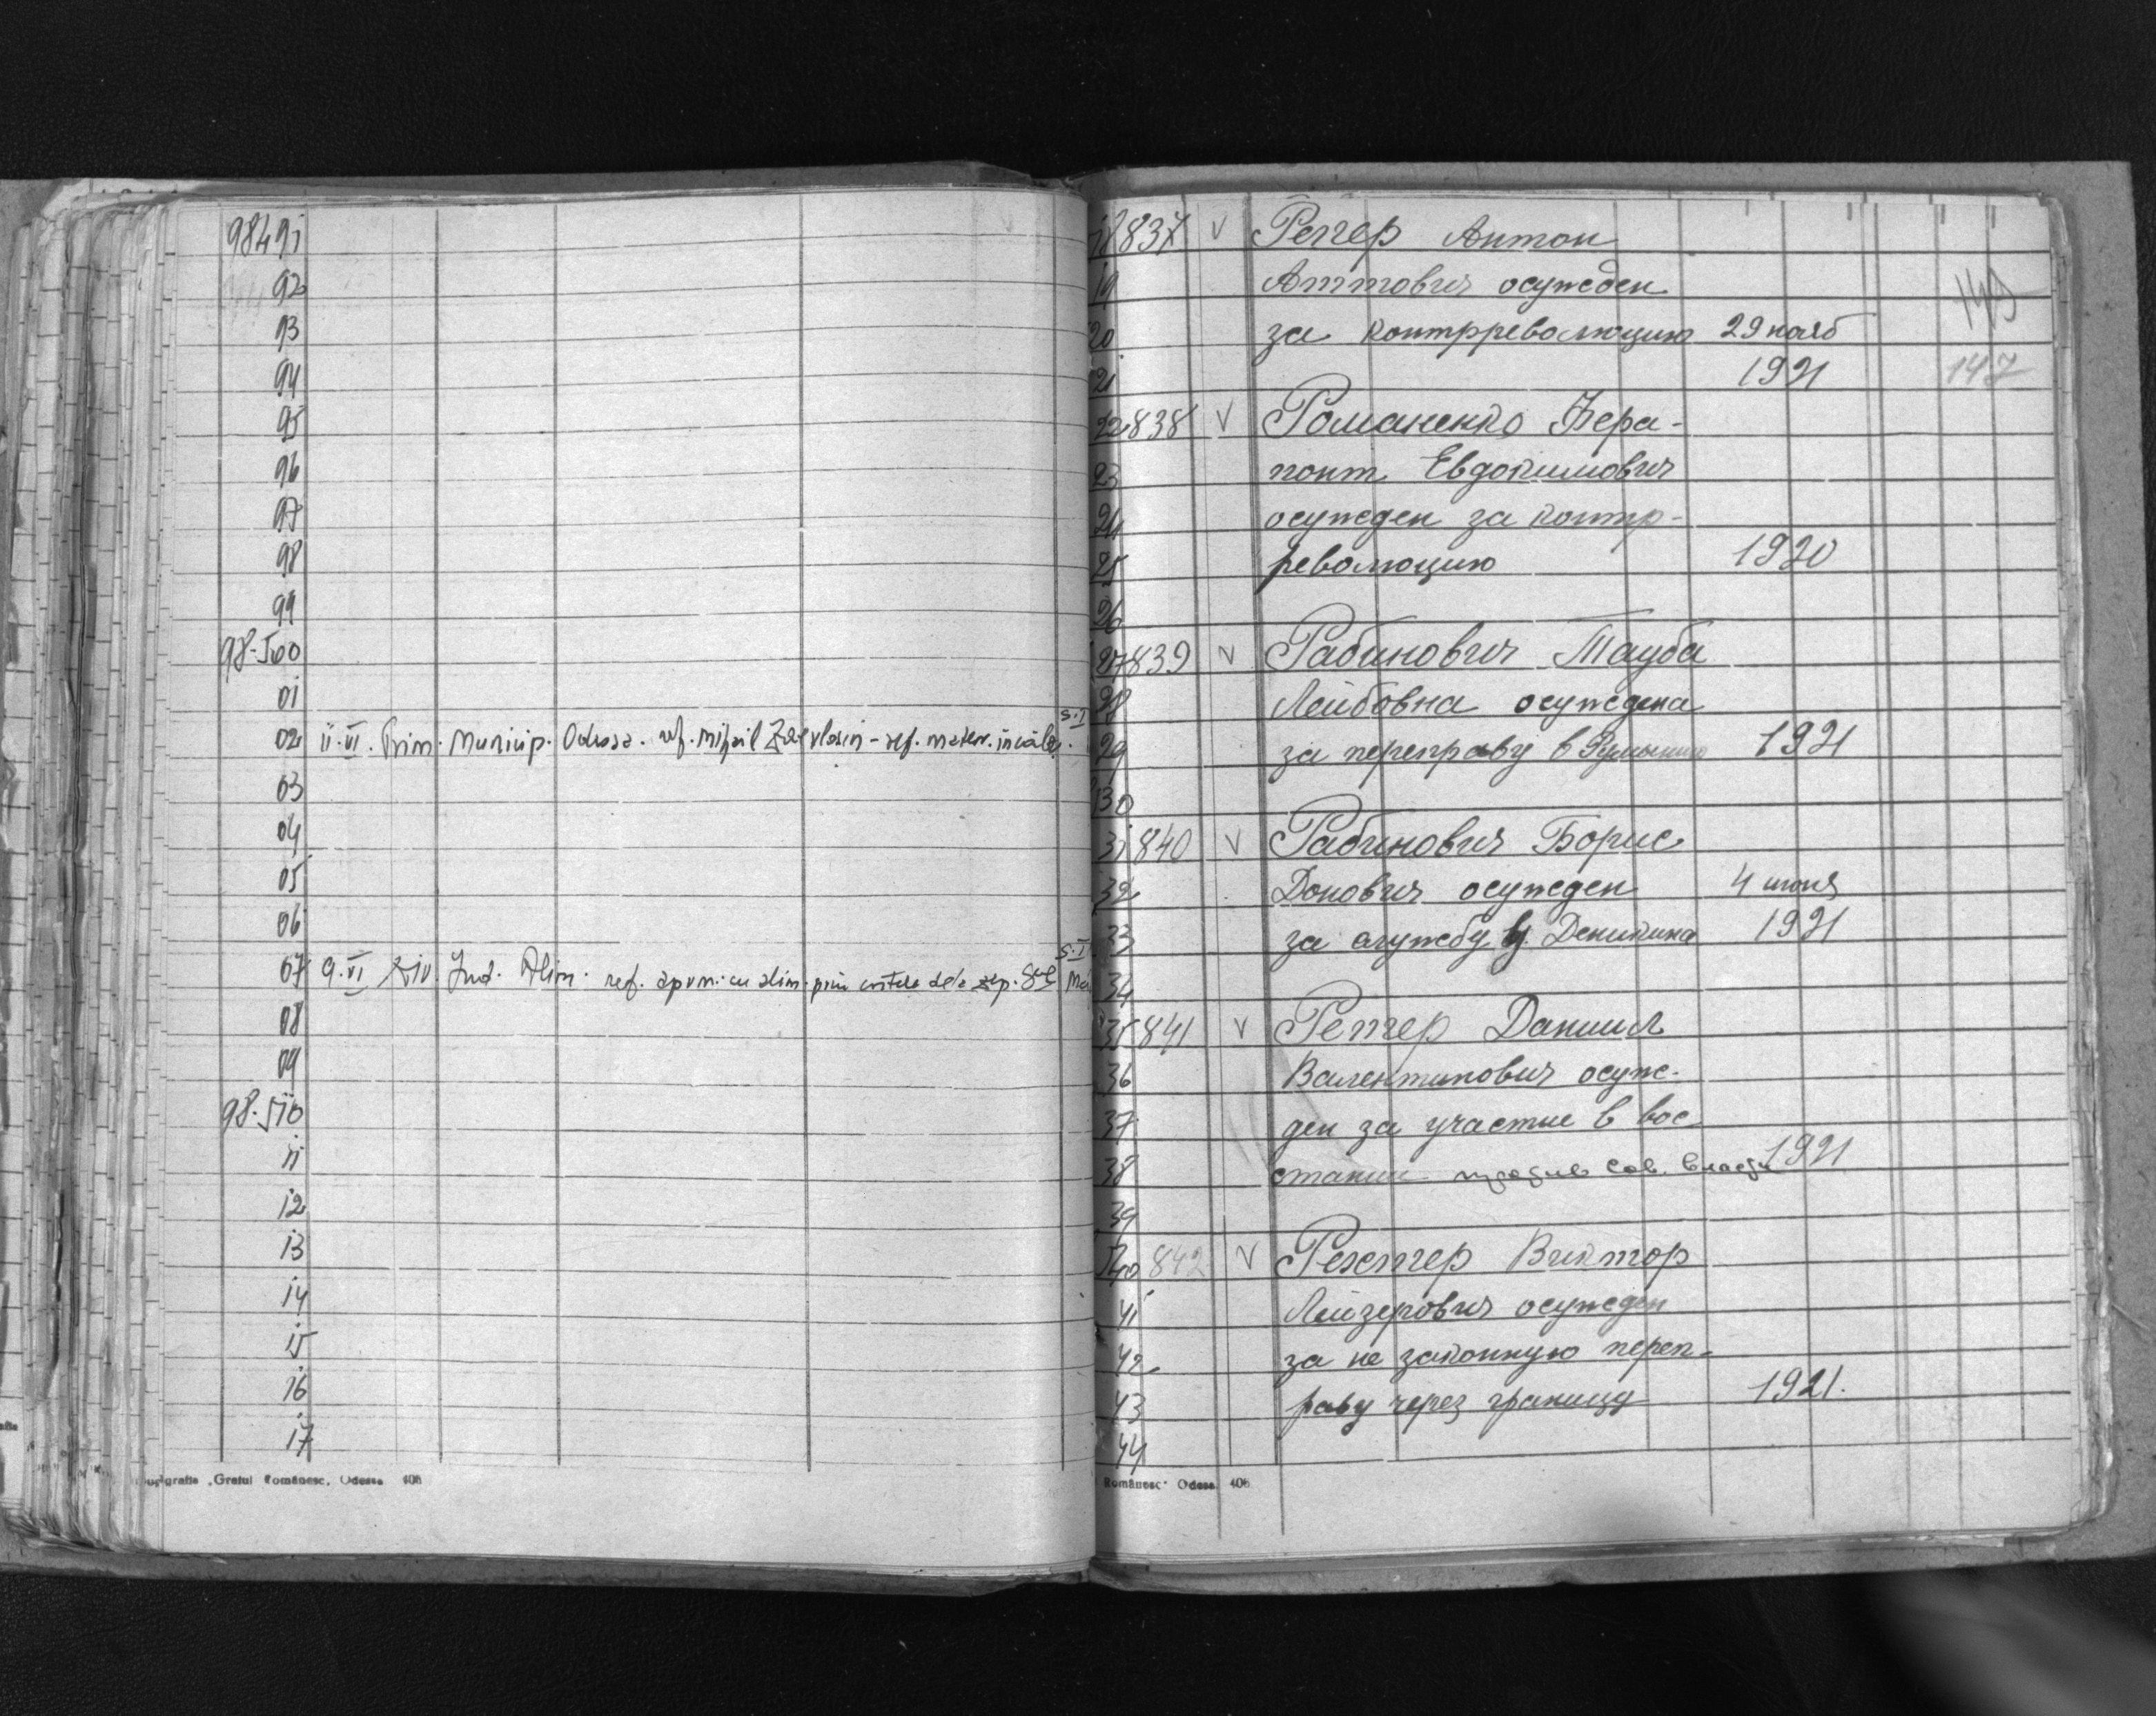 98491
92
93
94
95
96
97
98
99
98-500
01
S.I
02 11.VI. Prim. Municip. Odessa. ref. Mihail
03
04
05
06
S.I
07 9.VI Div. Jud. Alim. ref.
08
09
98-510
11
12
13
14
15
16
17
Tipografia „Graiul Românesc, Odessa 406
18 837 V Регер Антон
19 осужден
20 за контрреволюцию 29 нояб
21 1921
149
147
22 838 V Романенко Фера-
23 понт Евдокимович
24 осужден за контр-
25 революцию 1920
26
27 839 V Рабинович Тауба
28 Лейбовна осуждена
29 за переправу в Румынию 1921
30
31 840 V Рабинович Борис
32 Донович осужден 4 июня
33 за службу у Деникина 1921
34
35 841 V Регер Даниил
36 Валентинович осуж-
37 ден за участие в вос
38 стании против сов. власти 1921
39
40 842 V Виктор
41 Лейзерович осужден
42 за не законную переп-
43 раву через границу 1921.
44
Românesc" Odesa 406